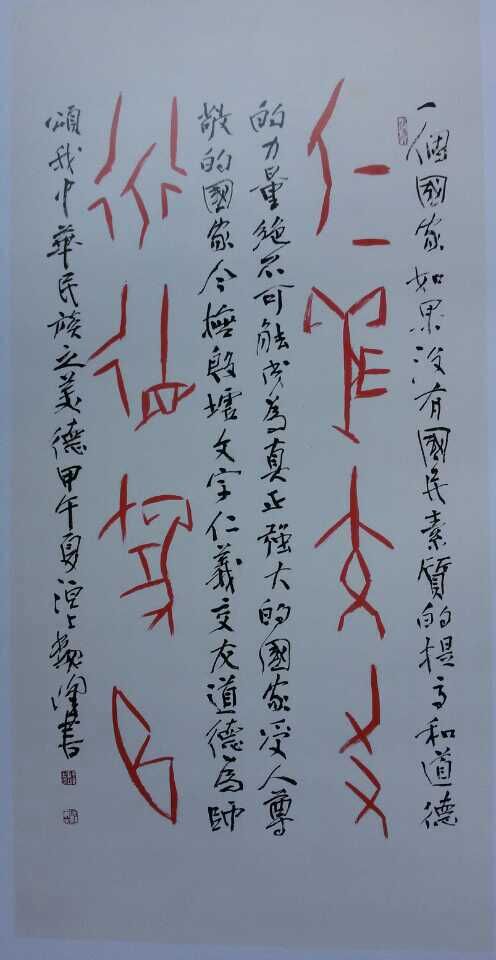 一個國家如果没有國民素質的提高和道德
仁義交友
的力量絶不可能成為真正強大的國家受人尊
敬的國家今撫殷墟文字仁義交友道德為師
道德為師
頌我中華民族之美德甲午夏洹上書